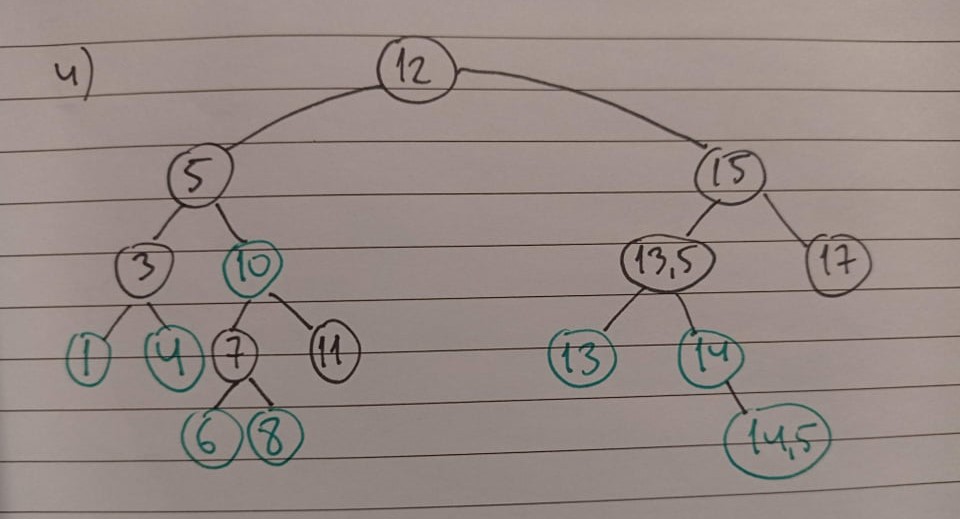 4)
12
5 15
3 10 13,5 17
1 4 7 11 13 14
6 8 14,5